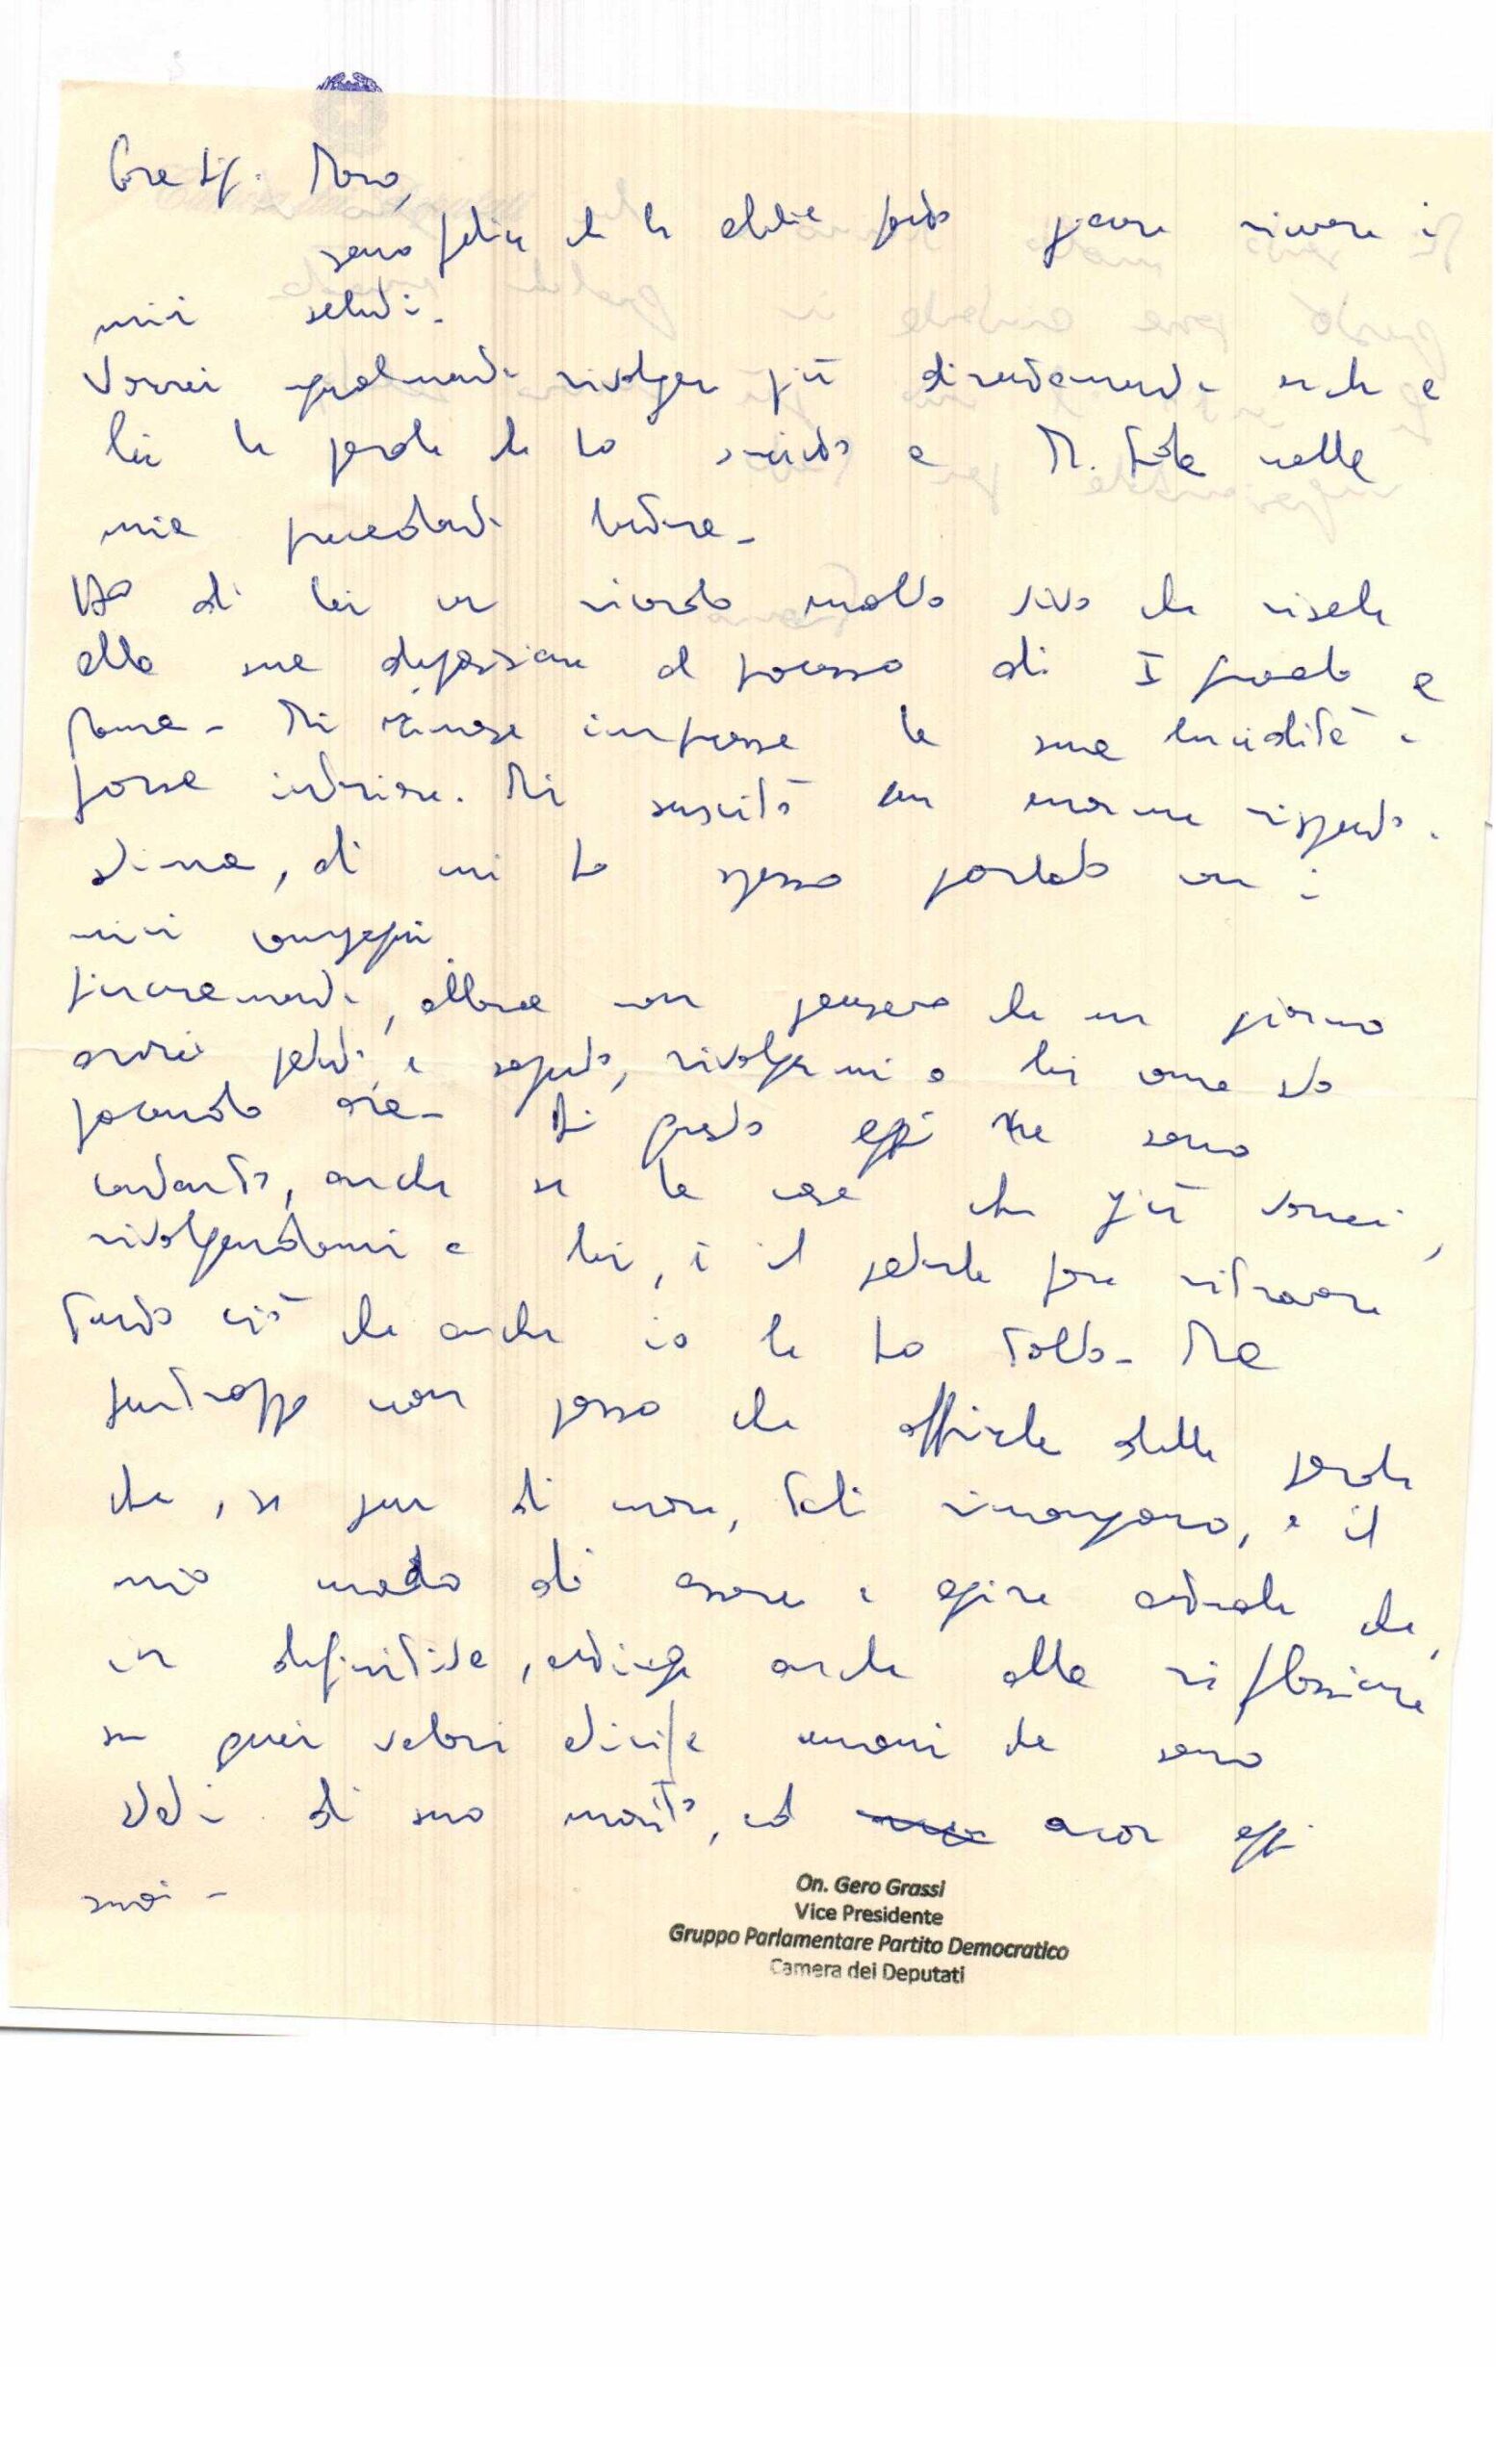 Gent.ssa Moro,
sono felice che le abbia fatto piacere ricevere i
miei saluti.
Vorrei ugualmente rivolger più direttamente anche a
lei le parole che ho scritto a M. Fida nella
mia precedente lettera.
Ho di lei un ricordo molto vivo che risale
alla sua deposizione al processo di I grado a
Roma. Mi rimase impressa la sua lucidità e
forza interiore. Mi suscitò un enorme rispetto e
stima, di cui ho spesso parlato con i
miei compagni.
Sinceramente, allora non pensavo che un giorno
avrei potuto, e saputo, rivolgermi a lei come sto
facendo ora. Di questo oggi ne sono
contento, anche se la cosa che più vorrei,
rivolgendomi a lei, è il poterle fare ritrovare
tutto ciò che anche io le ho tolto. Ma
purtroppo non posso che offrirle delle parole
che, se pur di cuore, tali rimangono, e il
mio modo di essere e agire attuale che,
in definitiva, attinge anche alla riflessione
su quei valori civili e umani che sono
stati di suo marito, ed ancor oggi
suoi.
On. Gero Grassi
Vice Presidente
Gruppo Parlamentare Partito Democratico
Camera dei Deputati